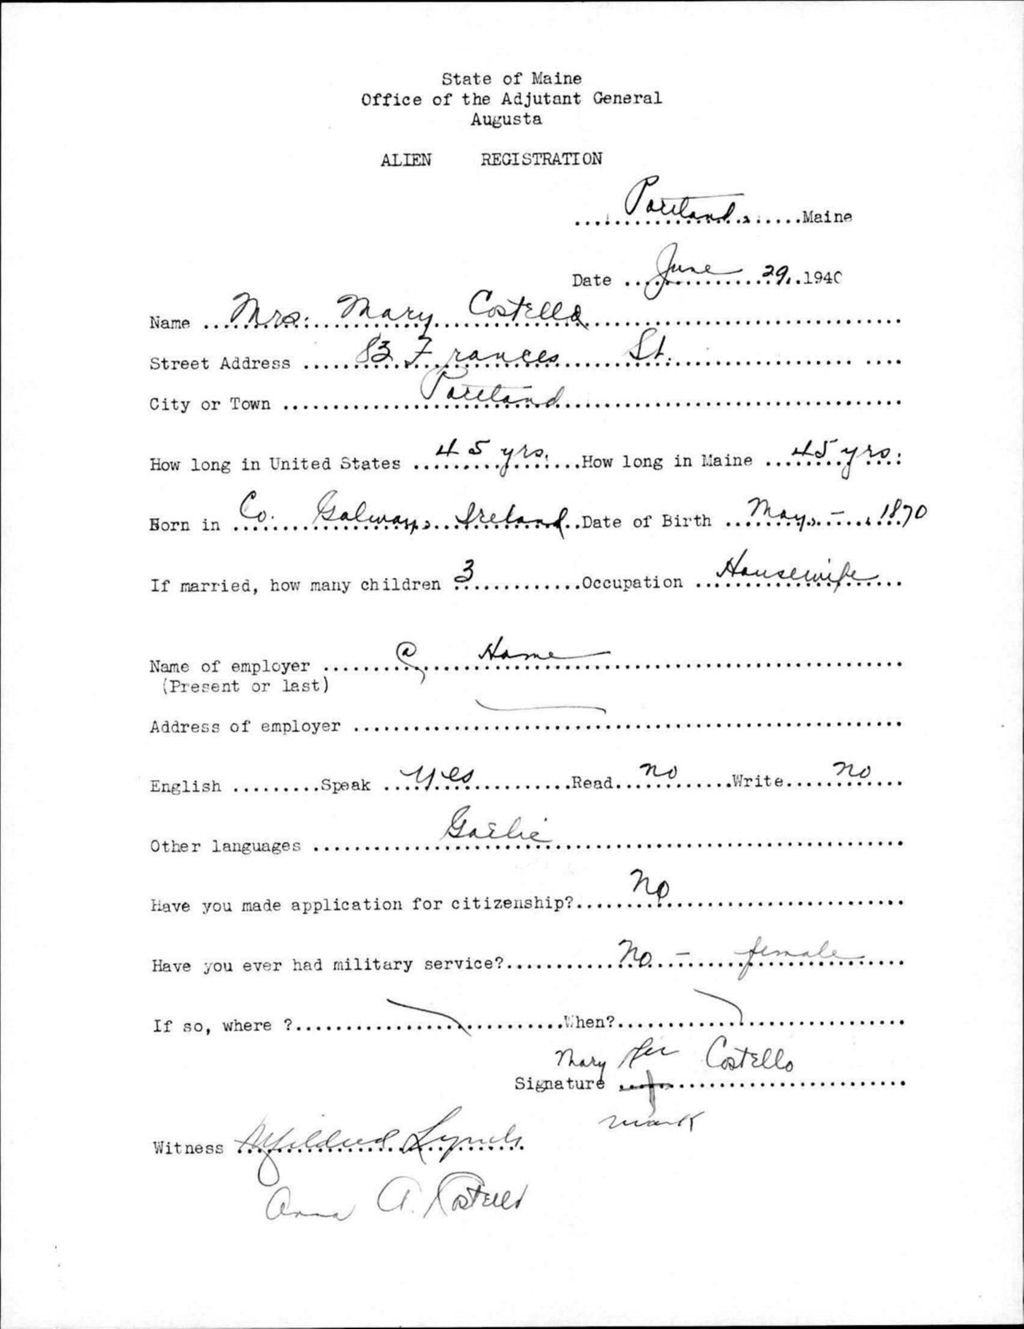 State of Maine
Office of the Adjutant General
Augusta
ALIEN REGISTRATION
Portland, Maine
Date June 29, 1940
Name Mrs. Mary Costello
Street Address 83 Frances St.
City or Town Portland
How long in United States 45 yrs. How long in Maine 45 yrs.
Born in Co. Galway, Ireland Date of Birth May, - 1870
If married, how many children 3 Occupation Housewife
Name of employer @ Home
(Present or last)
Address of employer
English Speak Yes Read no Write no
Other languages Gaelic
Have you made application for citizenship? No
Have you ever had military service? No - female
If so, where ? When?
Mary her Costello
Signature
mark
Witness Mildred Lynch
Anna A. Costello